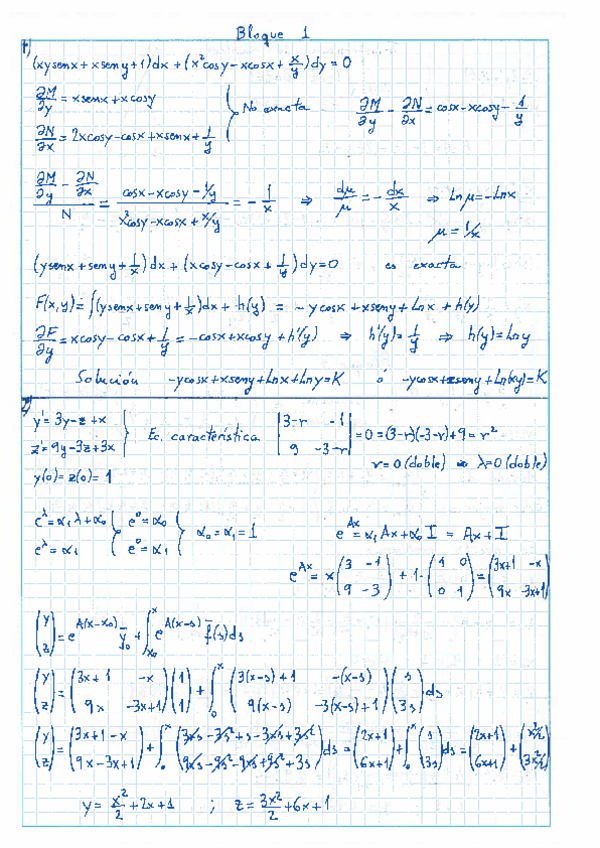 Bloque 1
1)
(xysenx + xseny + 1)dx + (x²cosy - xcosx + x/y)dy = 0
∂M/∂y = xsenx + xcosy
∂N/∂x = 2xcosy - cosx + xsenx + 1/y } No exacta ∂M/∂y - ∂N/∂x = cosx - xcosy - 1/y
(∂M/∂y - ∂N/∂x)/N = (cosx - xcosy - 1/y)/(x²cosy - xcosx + x/y) = -1/x ⇒ dμ/μ = -dx/x ⇒ Lnμ = -Lnx
μ = 1/x
(ysenx + seny + 1/x)dx + (xcosy - cosx + 1/y)dy = 0 es exacta
F(x,y) = ∫(ysenx + seny + 1/x)dx + h(y) = -ycosx + xseny + Lnx + h(y)
∂F/∂y = xcosy - cosx + 1/y = -cosx + xcosy + h'(y) ⇒ h'(y) = 1/y ⇒ h(y) = Lny
Solución -ycosx + xseny + Lnx + Lny = K ó -ycosx + xseny + Ln(xy) = K
2)
y' = 3y - z + x
z' = 9y - 3z + 3x } Ec. característica |3-r -1; 9 -3-r| = 0 = (3-r)(-3-r) + 9 = r²
y(0) = z(0) = 1 r = 0 (doble) ⇒ λ = 0 (doble)
e^λ = α₁λ + α₀ { e⁰ = α₀
e^λ = α₁ { e⁰ = α₁ } α₀ = α₁ = 1 e^{Ax} = α₁Ax + α₀I = Ax + I
e^{Ax} = x(3 -1; 9 -3) + 1·(1 0; 0 1) = (3x+1 -x; 9x -3x+1)
(y; z) = e^{A(x-x₀)} ȳ₀ + ∫_{x₀}^{x} e^{A(x-s)} f̄(s)ds
(y; z) = (3x+1 -x; 9x -3x+1)(1; 1) + ∫₀ˣ (3(x-s)+1 -(x-s); 9(x-s) -3(x-s)+1)(s; 3s)ds
(y; z) = (3x+1-x; 9x-3x+1) + ∫₀ˣ (3xs - 3s² + s - 3xs + 3s²; 9xs - 9s² - 9xs + 9s² + 3s)ds = (2x+1; 6x+1) + ∫₀ˣ (s; 3s)ds = (2x+1; 6x+1) + (x²/2; 3x²/2)
y = x²/2 + 2x + 1 ; z = 3x²/2 + 6x + 1